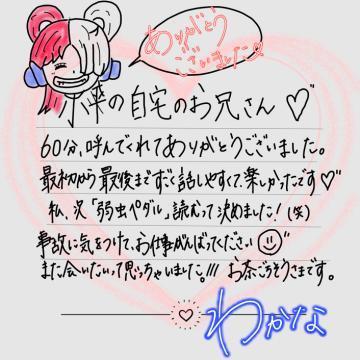 ありがとう
ございました♡
小牧の自宅のお兄さん♡
60分、呼んでくれてありがとうございました。
最初から最後まですごく話しやすくて、楽しかったです♡
私、次「弱虫ペダル」読むって決めました！(笑)
事故に気をつけて、お仕事がんばってください
また会いたいって思っちゃいました!!! お茶ごちそうさまです。
わかな